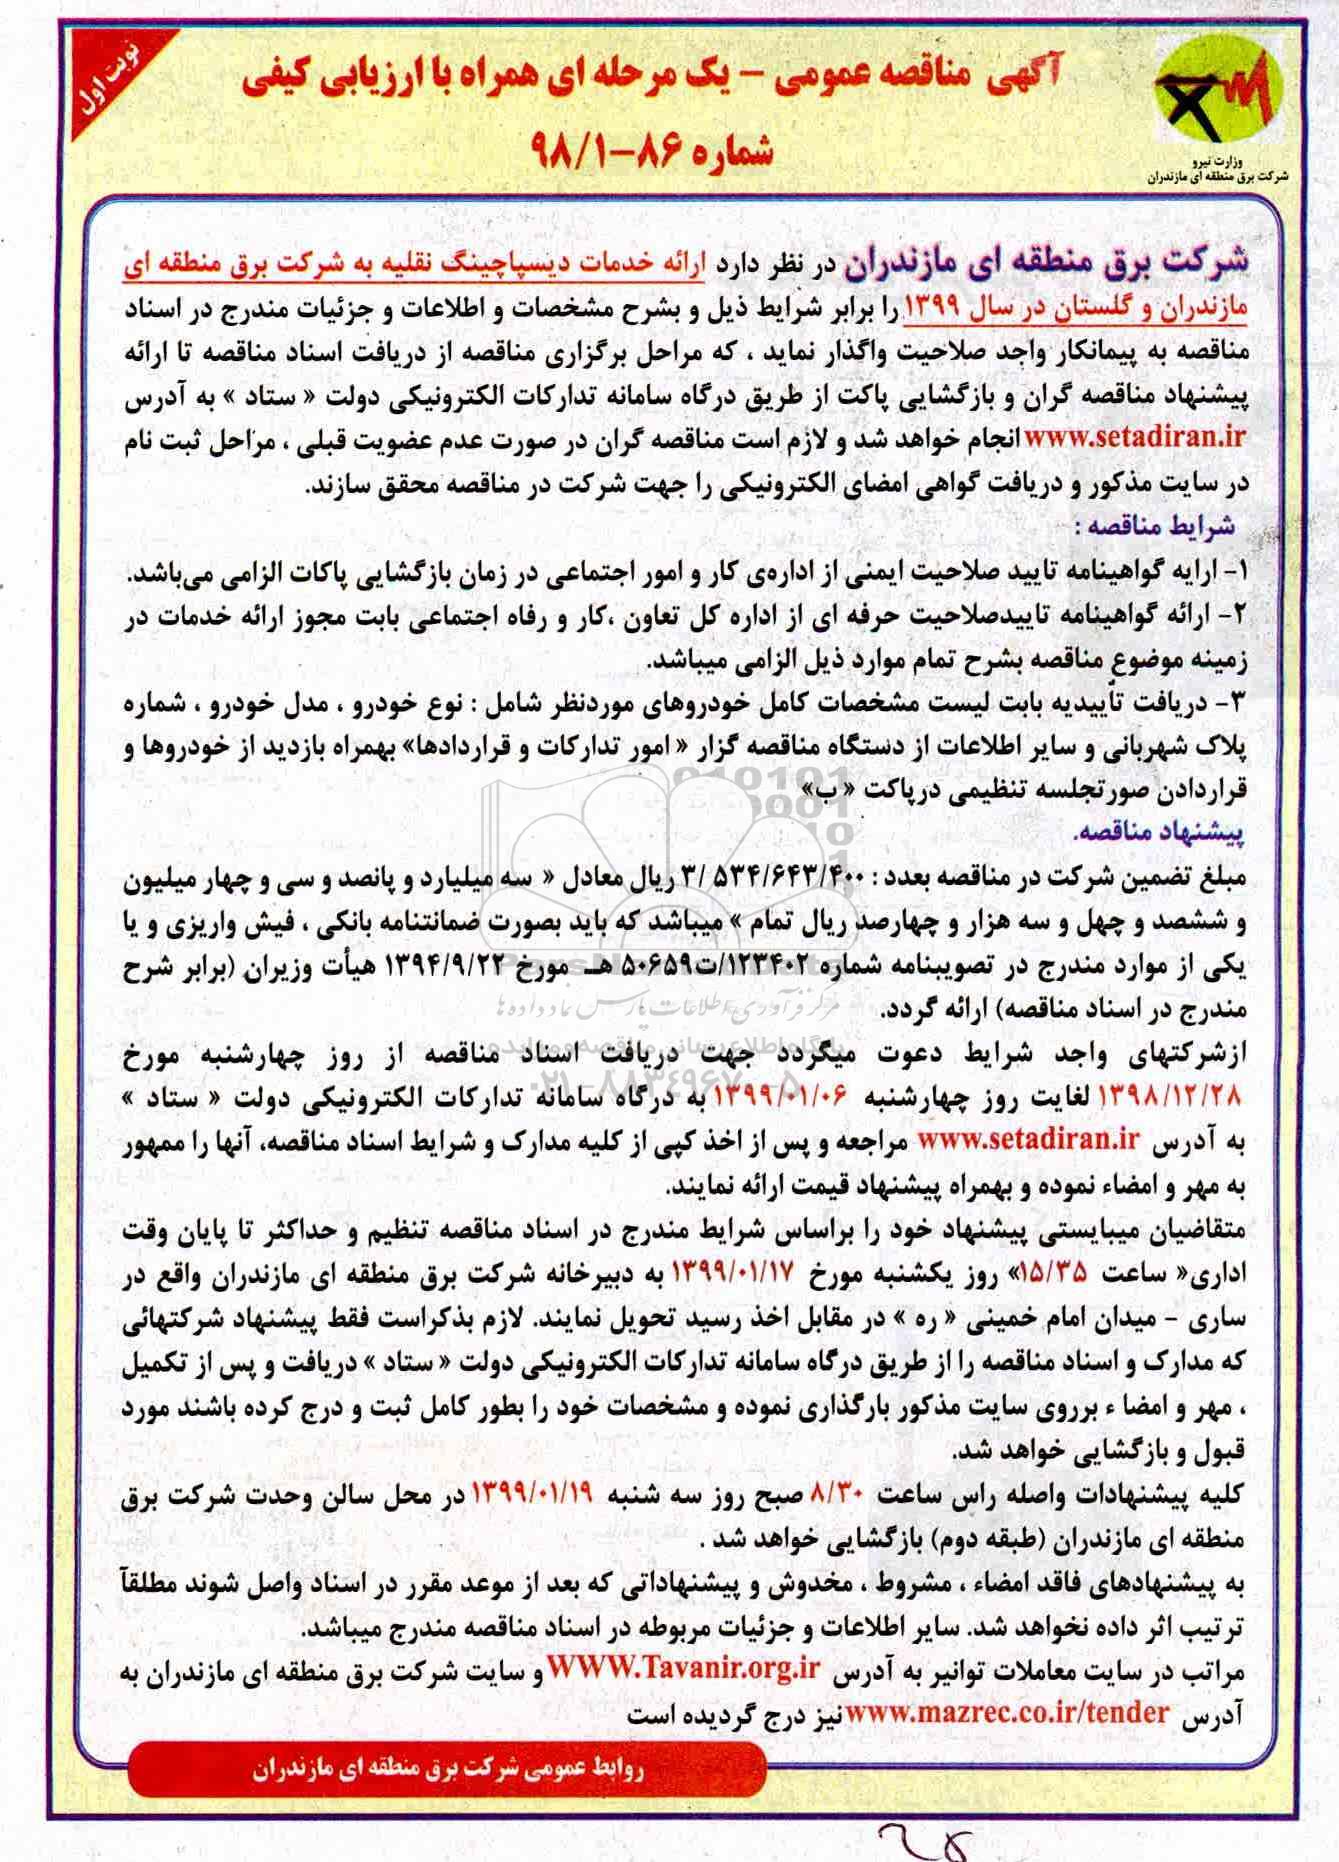 نوبت اول
آگهی مناقصه عمومی – یک مرحله ای همراه با ارزیابی کیفی
شماره ۸۶–۹۸/۱
وزارت نیرو
شرکت برق منطقه ای مازندران
شرکت برق منطقه ای مازندران در نظر دارد ارائه خدمات دیسپاچینگ نقلیه به شرکت برق منطقه ای
مازندران و گلستان در سال ۱۳۹۹ را برابر شرایط ذیل و بشرح مشخصات و اطلاعات و جزئیات مندرج در اسناد
مناقصه به پیمانکار واجد صلاحیت واگذار نماید ، که مراحل برگزاری مناقصه از دریافت اسناد مناقصه تا ارائه
پیشنهاد مناقصه گران و بازگشایی پاکت از طریق درگاه سامانه تدارکات الکترونیکی دولت « ستاد » به آدرس
www.setadiran.ir انجام خواهد شد و لازم است مناقصه گران در صورت عدم عضویت قبلی ، مراحل ثبت نام
در سایت مذکور و دریافت گواهی امضای الکترونیکی را جهت شرکت در مناقصه محقق سازند.
شرایط مناقصه :
۱- ارایه گواهینامه تایید صلاحیت ایمنی از اداره‌ی کار و امور اجتماعی در زمان بازگشایی پاکات الزامی می‌باشد.
۲- ارائه گواهینامه تاییدصلاحیت حرفه ای از اداره کل تعاون ،کار و رفاه اجتماعی بابت مجوز ارائه خدمات در
زمینه موضوع مناقصه بشرح تمام موارد ذیل الزامی میباشد.
۳- دریافت تأییدیه بابت لیست مشخصات کامل خودروهای موردنظر شامل : نوع خودرو ، مدل خودرو ، شماره
پلاک شهربانی و سایر اطلاعات از دستگاه مناقصه گزار « امور تدارکات و قراردادها» بهمراه بازدید از خودروها و
قراردادن صورتجلسه تنظیمی درپاکت « ب»
پیشنهاد مناقصه.
مبلغ تضمین شرکت در مناقصه بعدد : ۳/ ۵۳۴/۶۴۳/۴۰۰ ریال معادل « سه میلیارد و پانصد و سی و چهار میلیون
و ششصد و چهل و سه هزار و چهارصد ریال تمام » میباشد که باید بصورت ضمانتنامه بانکی ، فیش واریزی و یا
یکی از موارد مندرج در تصویبنامه شماره ۱۲۳۴۰۲/ت۵۰۶۵۹ هـ مورخ ۱۳۹۴/۹/۲۲ هیأت وزیران (برابر شرح
مندرج در اسناد مناقصه) ارائه گردد.
ازشرکتهای واجد شرایط دعوت میگردد جهت دریافت اسناد مناقصه از روز چهارشنبه مورخ
۱۳۹۸/۱۲/۲۸ لغایت روز چهارشنبه ۱۳۹۹/۰۱/۰۶ به درگاه سامانه تدارکات الکترونیکی دولت « ستاد »
به آدرس www.setadiran.ir مراجعه و پس از اخذ کپی از کلیه مدارک و شرایط اسناد مناقصه، آنها را ممهور
به مهر و امضاء نموده و بهمراه پیشنهاد قیمت ارائه نمایند.
متقاضیان میبایستی پیشنهاد خود را براساس شرایط مندرج در اسناد مناقصه تنظیم و حداکثر تا پایان وقت
اداری« ساعت ۱۵/۳۵» روز یکشنبه مورخ ۱۳۹۹/۰۱/۱۷ به دبیرخانه شرکت برق منطقه ای مازندران واقع در
ساری - میدان امام خمینی « ره » در مقابل اخذ رسید تحویل نمایند. لازم بذکراست فقط پیشنهاد شرکتهائی
که مدارک و اسناد مناقصه را از طریق درگاه سامانه تدارکات الکترونیکی دولت « ستاد » دریافت و پس از تکمیل
، مهر و امضا ء برروی سایت مذکور بارگذاری نموده و مشخصات خود را بطور کامل ثبت و درج کرده باشند مورد
قبول و بازگشایی خواهد شد.
کلیه پیشنهادات واصله راس ساعت ۸/۳۰ صبح روز سه شنبه ۱۳۹۹/۰۱/۱۹ در محل سالن وحدت شرکت برق
منطقه ای مازندران (طبقه دوم) بازگشایی خواهد شد .
به پیشنهادهای فاقد امضاء ، مشروط ، مخدوش و پیشنهاداتی که بعد از موعد مقرر در اسناد واصل شوند مطلقآ
ترتیب اثر داده نخواهد شد. سایر اطلاعات و جزئیات مربوطه در اسناد مناقصه مندرج میباشد.
مراتب در سایت معاملات توانیر به آدرس WWW.Tavanir.org.ir و سایت شرکت برق منطقه ای مازندران به
آدرس www.mazrec.co.ir/tender نیز درج گردیده است
روابط عمومی شرکت برق منطقه ای مازندران